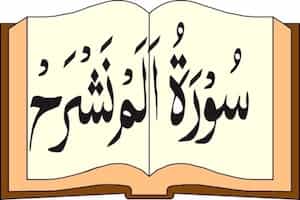 سُوْرَةُ اَلَمْ نَشْرَحْ